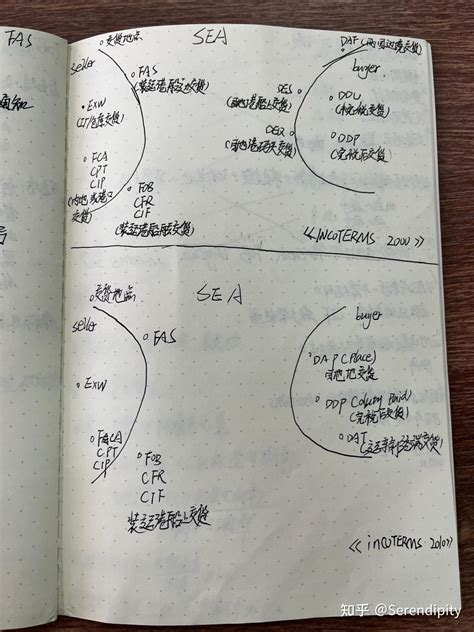 FAS
通知
号
。交货地点
SEA
。DAF (两国边境交货)
seller
buyer
。FAS
(装运港船边交货)
DES。
(目的港船上交货)
。DDU
(未完税交货)
。EXW
(工厂/仓库交货)
DEQ。
(目的港码头交货)
。DDP
(完税后交货)
。FCA
CPT
CIP
(内地或港口
交货)
。FOB
CFR
CIF
(装运港船舷交货)
《INCOTERMS 2000》
。交货地点
SEA
seller
buyer
。FAS
。DAP (Place)
目的地交货
。EXW
。DDP
(完税后交货)
。DAT
CPT
CIP
。FOB
CFR
CIF
装运港船上交货
《incoterms 2010》
知乎 @Serendipity